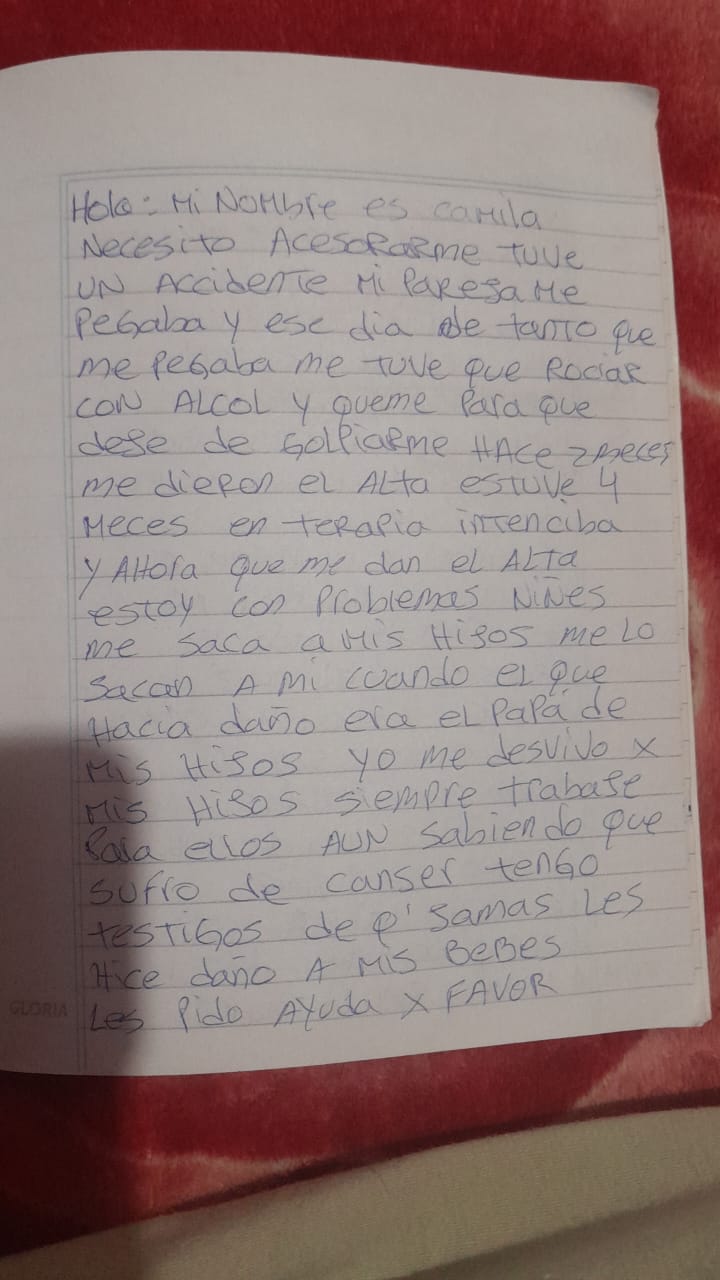 Hola: Mi NOMbre es camila
Necesito Acesorarme tuve
UN Accidente Mi Paresa Me
Pegaba y ese dia de tanto que
me Pegaba me tuve que Rociar
CON ALCOL y queme Para que
dese de Golpiarme HAce 2 meces
me dieron el Alta estuve 4
Meces en terapia intenciba
y AHora que me dan el ALTA
estoy con Problemas Niñes
me saca a Mis Hisos me Lo
sacan A Mi cuando el que
Hacia daño era el PaPá de
Mis Hisos yo me desvivo x
Mis Hisos siempre trabase
Para ellos AUN sabiendo que
sufro de canser tengo
testigos de q' samas Les
Hice daño A Mis BeBes
Les Pido Ayuda x FAVOR
GLORIA